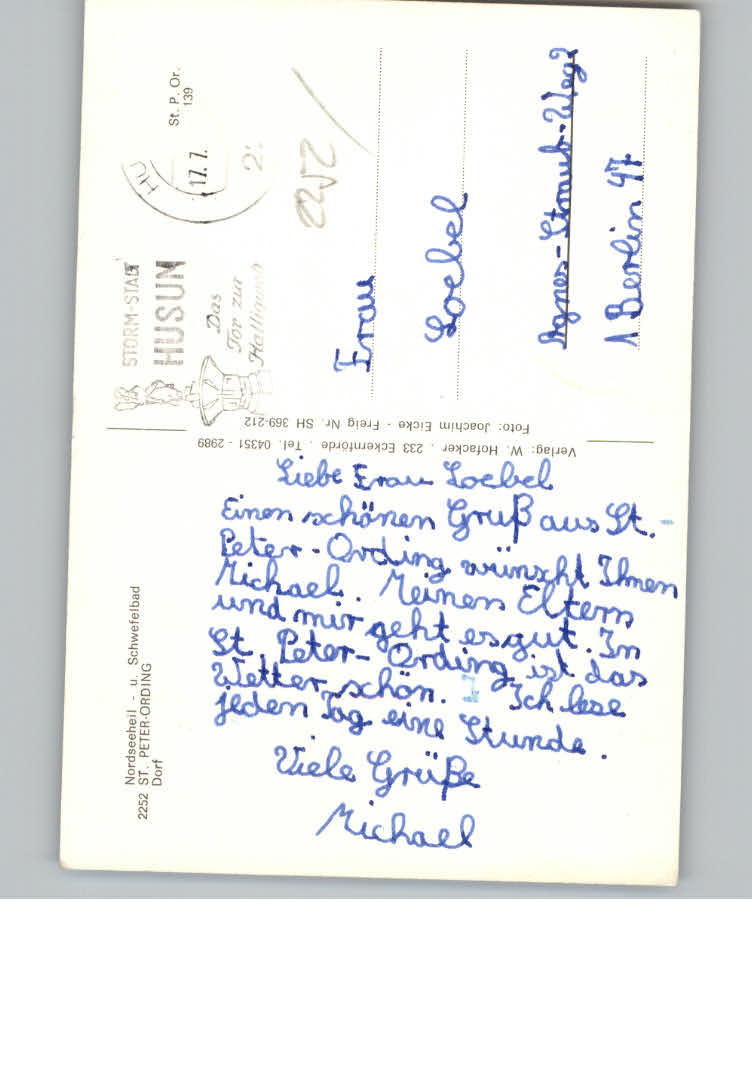 Nordseeheil - u. Schwefelbad
2252 ST. PETER-ORDING
Dorf
Liebe Frau Loebel
Einen schönen Gruß aus St.-
Peter-Ording wünscht Ihnen
Michael. Meinen Eltern
und mir geht es gut. In
St. Peter-Ording ist das
Wetter schön. Ich lese
jeden Tag eine Stunde.
Viele Grüße
Michael
Verlag: W. Hofacker . 233 Eckernförde . Tel. 04351 - 2989
Foto: Joachim Eicke - Freig Nr. SH 369-212
STORM-STADT
HUSUM
Das
Tor zur
HU
17.7.
St. P. Or.
139
2252
Frau
Loebel
Agnes-Straub-Weg 2
1 Berlin 47